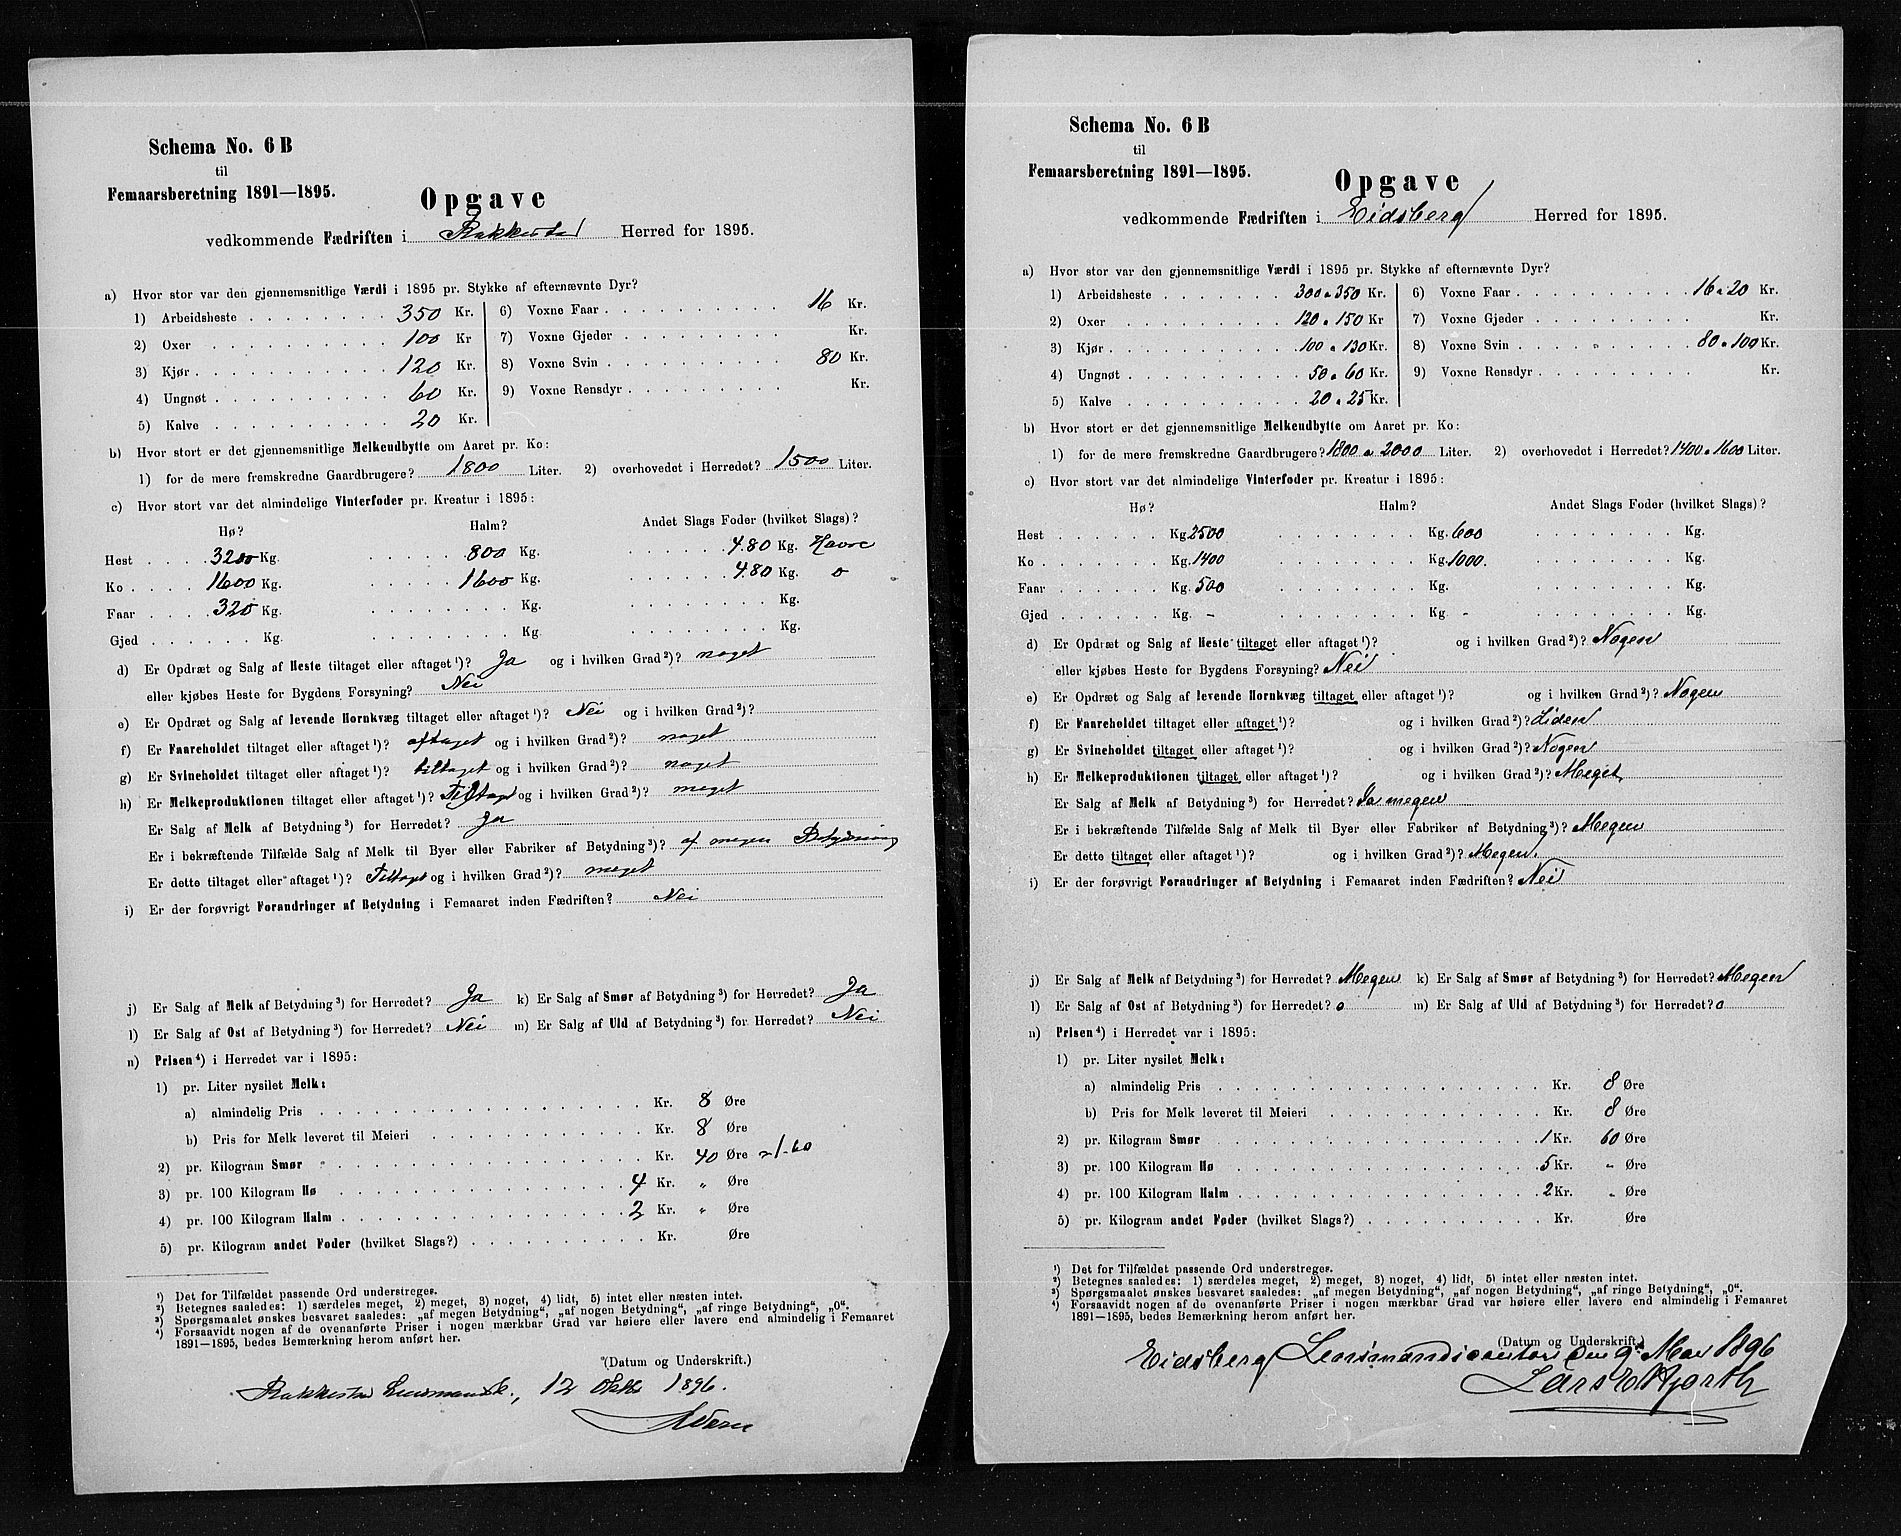 Schema No. 6 B
til
Femaarsberetning 1891—1895.
Opgave
vedkommende Fædriften i Rakkestad Herred for 1895.
a) Hvor stor var den gjennemsnitlige Værdi i 1895 pr. Stykke af efternævnte Dyr?
1) Arbeidsheste 350 Kr.
2) Oxer 100 Kr
3) Kjør 120 Kr.
4) Ungnøt 60 Kr.
5) Kalve 20 Kr.
6) Voxne Faar 16 Kr.
7) Voxne Gjeder Kr.
8) Voxne Svin 80 Kr.
9) Voxne Rensdyr Kr.
b) Hvor stort er det gjennemsnitlige Melkeudbytte om Aaret pr. Ko:
1) for de mere fremskredne Gaardbrugere? 1800 Liter. 2) overhovedet i Herredet? 1500 Liter.
c) Hvor stort var det almindelige Vinterfoder pr. Kreatur i 1895:
Hø? Halm? Andet Slags Foder (hvilket Slags)?
Hest 3200 Kg. 800 Kg. 480 Kg. Havre
Ko 1600 Kg. 1600 Kg. 480 Kg. o
Faar 320 Kg. Kg. Kg.
Gjed Kg. Kg. Kg.
d) Er Opdræt og Salg af Heste tiltaget eller aftaget ¹)? Ja og i hvilken Grad ²)? noget
eller kjøbes Heste for Bygdens Forsyning? Nei
e) Er Opdræt og Salg af levende Hornkvæg tiltaget eller aftaget ¹)? Nei og i hvilken Grad ²)?
f) Er Faareholdet tiltaget eller aftaget ¹)? aftaget og i hvilken Grad ²)? noget
g) Er Svineholdet tiltaget eller aftaget ¹)? tiltaget og i hvilken Grad ²)? noget
h) Er Melkeproduktionen tiltaget eller aftaget ¹)? Tiltaget og i hvilken Grad ²)? meget
Er Salg af Melk af Betydning ³) for Herredet? Ja
Er i bekræftende Tilfælde Salg af Melk til Byer eller Fabriker af Betydning ³)? af megen Betydning
Er dette tiltaget eller aftaget ¹)? Tiltaget og i hvilken Grad ²)? meget
i) Er der forøvrigt Forandringer af Betydning i Femaaret inden Fædriften? Nei
j) Er Salg af Melk af Betydning ³) for Herredet? Ja k) Er Salg af Smør af Betydning ³) for Herredet? Ja
l) Er Salg af Ost af Betydning ³) for Herredet? Nei m) Er Salg af Uld af Betydning ³) for Herredet? Nei
n) Prisen ⁴) i Herredet var i 1895:
1) pr. Liter nysilet Melk:
a) almindelig Pris Kr. 8 Øre
b) Pris for Melk leveret til Meieri Kr. 8 Øre
2) pr. Kilogram Smør Kr. 40 Øre 1-60
3) pr. 100 Kilogram Hø 4 Kr. " Øre
4) pr. 100 Kilogram Halm 2 Kr. " Øre
5) pr. Kilogram andet Foder (hvilket Slags?) Kr. Øre
¹) Det for Tilfældet passende Ord understreges.
²) Betegnes saaledes: 1) særdeles meget, 2) meget, 3) noget, 4) lidt, 5) intet eller næsten intet.
³) Spørgsmaalet ønskes besvaret saaledes: „af megen Betydning“, „af nogen Betydning“, „af ringe Betydning“, „0“.
⁴) Forsaavidt nogen af de ovenanførte Priser i nogen mærkbar Grad var høiere eller lavere end almindelig i Femaaret
1891—1895, bedes Bemærkning herom anført her.
(Datum og Underskrift.)
Rakkestad 12 Oktbr 1896.
Schema No. 6 B
til
Femaarsberetning 1891—1895.
Opgave
vedkommende Fædriften i Eidsberg Herred for 1895.
a) Hvor stor var den gjennemsnitlige Værdi i 1895 pr. Stykke af efternævnte Dyr?
1) Arbeidsheste 300 a 350 Kr.
2) Oxer 120 a 150 Kr
3) Kjør 100 a 130 Kr.
4) Ungnøt 50 a 60 Kr.
5) Kalve 20 a 25 Kr.
6) Voxne Faar 16 a 20 Kr.
7) Voxne Gjeder Kr.
8) Voxne Svin 80 a 100 Kr.
9) Voxne Rensdyr Kr.
b) Hvor stort er det gjennemsnitlige Melkeudbytte om Aaret pr. Ko:
1) for de mere fremskredne Gaardbrugere? 1800 a 2000 Liter. 2) overhovedet i Herredet? 1400 a 1600 Liter.
c) Hvor stort var det almindelige Vinterfoder pr. Kreatur i 1895:
Hø? Halm? Andet Slags Foder (hvilket Slags)?
Hest Kg. 2500 Kg. 600 Kg.
Ko Kg. 1400 Kg. 1000. Kg.
Faar Kg. 500 Kg. Kg.
Gjed Kg. - Kg. - Kg.
d) Er Opdræt og Salg af Heste tiltaget eller aftaget ¹)? og i hvilken Grad ²)? Nogen
eller kjøbes Heste for Bygdens Forsyning? Nei
e) Er Opdræt og Salg af levende Hornkvæg tiltaget eller aftaget ¹)? og i hvilken Grad ²)? Nogen
f) Er Faareholdet tiltaget eller aftaget ¹)? og i hvilken Grad ²)? Liden
g) Er Svineholdet tiltaget eller aftaget ¹)? og i hvilken Grad ²)? Nogen
h) Er Melkeproduktionen tiltaget eller aftaget ¹)? og i hvilken Grad ²)? Meget
Er Salg af Melk af Betydning ³) for Herredet? Ja megen
Er i bekræftende Tilfælde Salg af Melk til Byer eller Fabriker af Betydning ³)? Megen
Er dette tiltaget eller aftaget ¹)? og i hvilken Grad ²)? Megen.
i) Er der forøvrigt Forandringer af Betydning i Femaaret inden Fædriften? Nei
j) Er Salg af Melk af Betydning ³) for Herredet? Megen k) Er Salg af Smør af Betydning ³) for Herredet? Megen
l) Er Salg af Ost af Betydning ³) for Herredet? o m) Er Salg af Uld af Betydning ³) for Herredet? o
n) Prisen ⁴) i Herredet var i 1895:
1) pr. Liter nysilet Melk:
a) almindelig Pris Kr. 8 Øre
b) Pris for Melk leveret til Meieri Kr. 8 Øre
2) pr. Kilogram Smør 1 Kr. 60 Øre
3) pr. 100 Kilogram Hø 5 Kr. " Øre
4) pr. 100 Kilogram Halm 2 Kr. " Øre
5) pr. Kilogram andet Føder (hvilket Slags?) Kr. Øre
¹) Det for Tilfældet passende Ord understreges.
²) Betegnes saaledes: 1) særdeles meget, 2) meget, 3) noget, 4) lidt, 5) intet eller næsten intet.
³) Spørgsmaalet ønskes besvaret saaledes: „af megen Betydning“, „af nogen Betydning“, „af ringe Betydning“, „0“.
⁴) Forsaavidt nogen af de ovenanførte Priser i nogen mærkbar Grad var høiere eller lavere end almindelig i Femaaret
1891—1895, bedes Bemærkning herom anført her.
(Datum og Underskrift.)
Eidsberg Lensmandscontor den 9 Mai 1896
Lars Hjorth